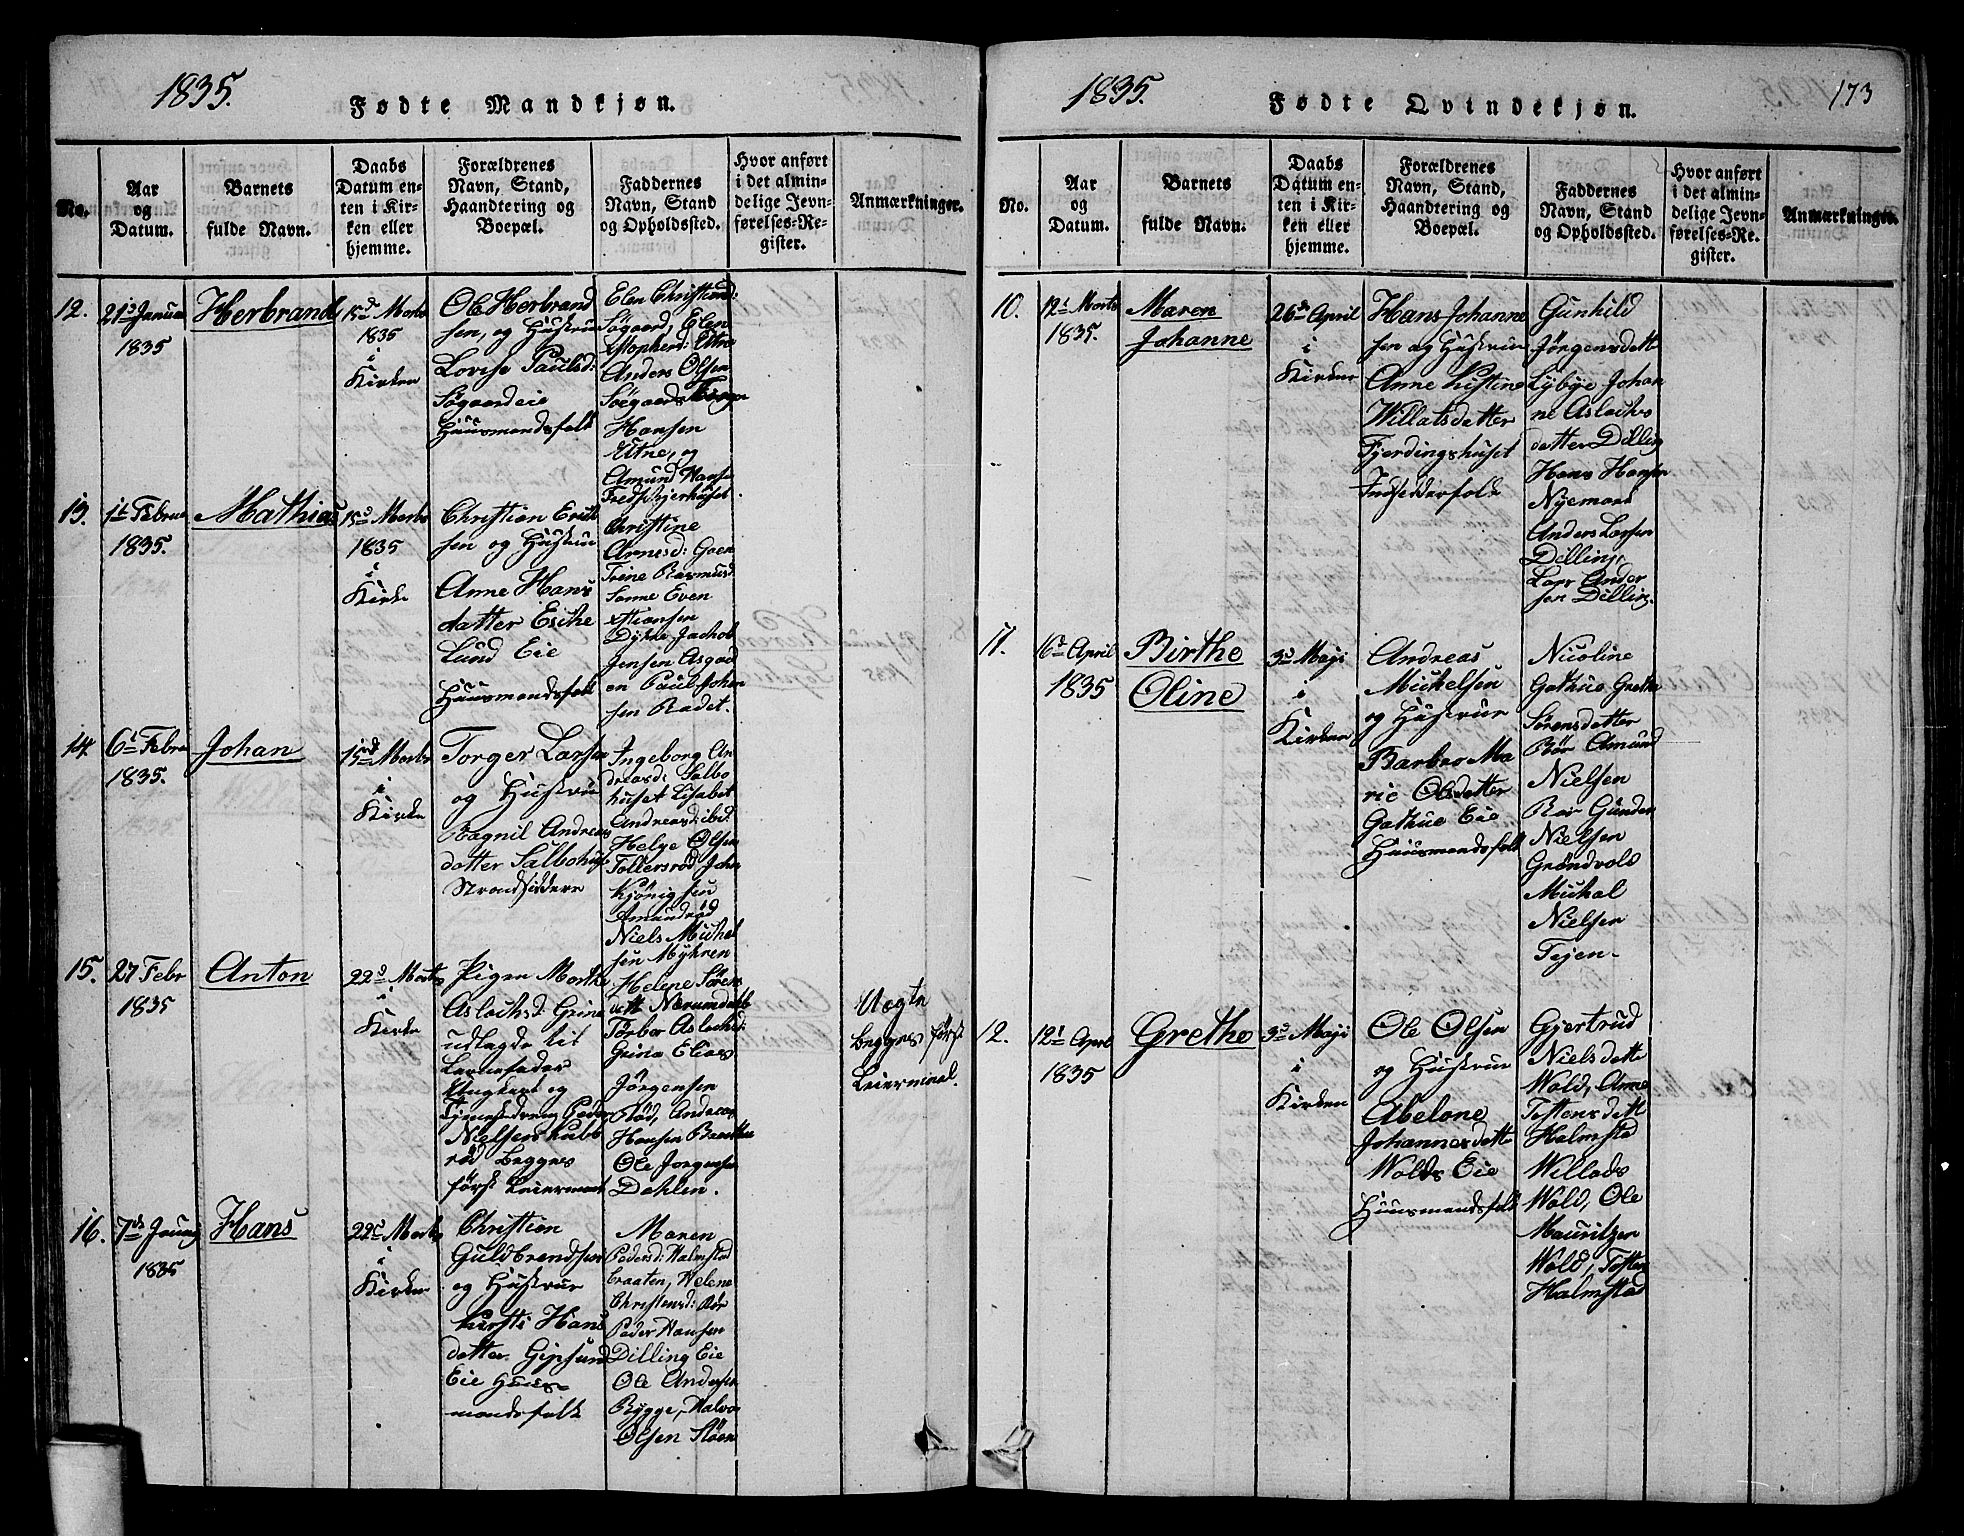 1835.
Fødte Mandkjøn.
No.
Aar
og
Datum.
Barnets
fulde Navn.
Daabs
Datum en-
ten i Kir-
ken eller
hjemme.
Forældrenes
Navn, Stand,
Haandtering og
Boepæl.
Faddernes
Navn, Stand
og Opholdssted.
Hvor anført
i det almin-
delige Jevn-
førelses-Re-
gister.
Anmærkninger.
12.
1835
Herbrand
1835
i
Kirken
Ole Herbrand
sen, og Hustru
Lovise Paulsd:
Søgaardeie
Huusmandsfolk
Søgaard, Elen
Anders Olsen
Hansen
Utne, og
Amund Hans
13.
1835.
Mathias
1835
i
Kirke
Christian
sen og Hustru
Anne Hans
datter
Lund Eie
Huusmandsfolk
Christine
Arnesd:
Trine Rasmusd
Sonne Even
Jensen Asgaard
en Paul Johan
sen Radet.
14.
6t Febru
1835.
Johan
i
Kirke
Torger Larsen
og Hustru
Ragnil Andreas
datter
Strandsiddere
Ingeborg An
dreasd:
huset Lisabet
Andreasd: ibid
Helge Olsen
Tollersrød Johan
Niels Michel
sen Myhren
15.
27 Febr
1835
Anton
i
Kirke
Pigen Marthe
Aslachsd: Grine
udlagde til
Barnefader
Ungkarl og
Nielsen
rød begges
først Leiermaal
Helene Sørens
Grina Elias
Jørgensen
Hansen
Ole Jørgensen
Dahlen.
Uægte
Begges først
Leiermaal.
16.
1835
Hans
i
Kirken
Christian
Guldbrendsen
og Hustrue
Kirsti Hans
datter. Gipsund
Eie Huus-
mandsfolk
Maren
Pedersd: Halmstad
braaten, Helene
Christensd: Rør
Peder Hansen
Dilling Eie
Ole Andersen
Rygge, Halvor
Olsen
1835.
Fødte Qvindekjøn.
173
No.
Aar
og
Datum.
Barnets
fulde Navn.
Daabs
Datum en-
ten i Kir-
ken eller
hjemme.
Forældrenes
Navn, Stand,
Haandtering og
Boepæl.
Faddernes
Navn, Stand
og Opholdssted.
Hvor anført
i det almin-
delige Jevn-
førelses-Re-
gister.
Anmærkninger.
10.
12t Marts
1835.
Maren
Johanne
26de April
i
Kirken
Hans Johanne
sen og Hustrue
Anne Kistine
Willatsdatter
Fjerdingshuset
Indsidderfolk
Gunhild
Jørgensdatt
Lybye Johan
ne Aslachs
datter Dilling
Hans Hansen
Nyemark
Anders Larsen
Dilling,
Lars Ander
sen Dilling.
11.
16de April
1835
Birthe
Oline
3de Maji
i
Kirken
Andreas
Michelsen
og Hustrue
Barbro Ma
rie Olesdatter
Gathue Eie
Huusmandsfolk
Nicoline
Gathue Grethe
Sørensdatter
Rør Amund
Nielsen
Rør Gunder
Nielsen
Grøndvold
Michal
Nielsen
Tejen.
12.
12t April
1835
Grethe
3de Maji
i
Kirken
Ole Olsen
og Hustrue
Abelone
Johannesdatte
Wolds Eie
Huusmandsfolk
Gjertrud
Nielsdatte
Wold, Anne
Tostensdatt
Halmstad
Willads
Wold, Ole
Mauritzen
Wold, Tosten
Halmstad